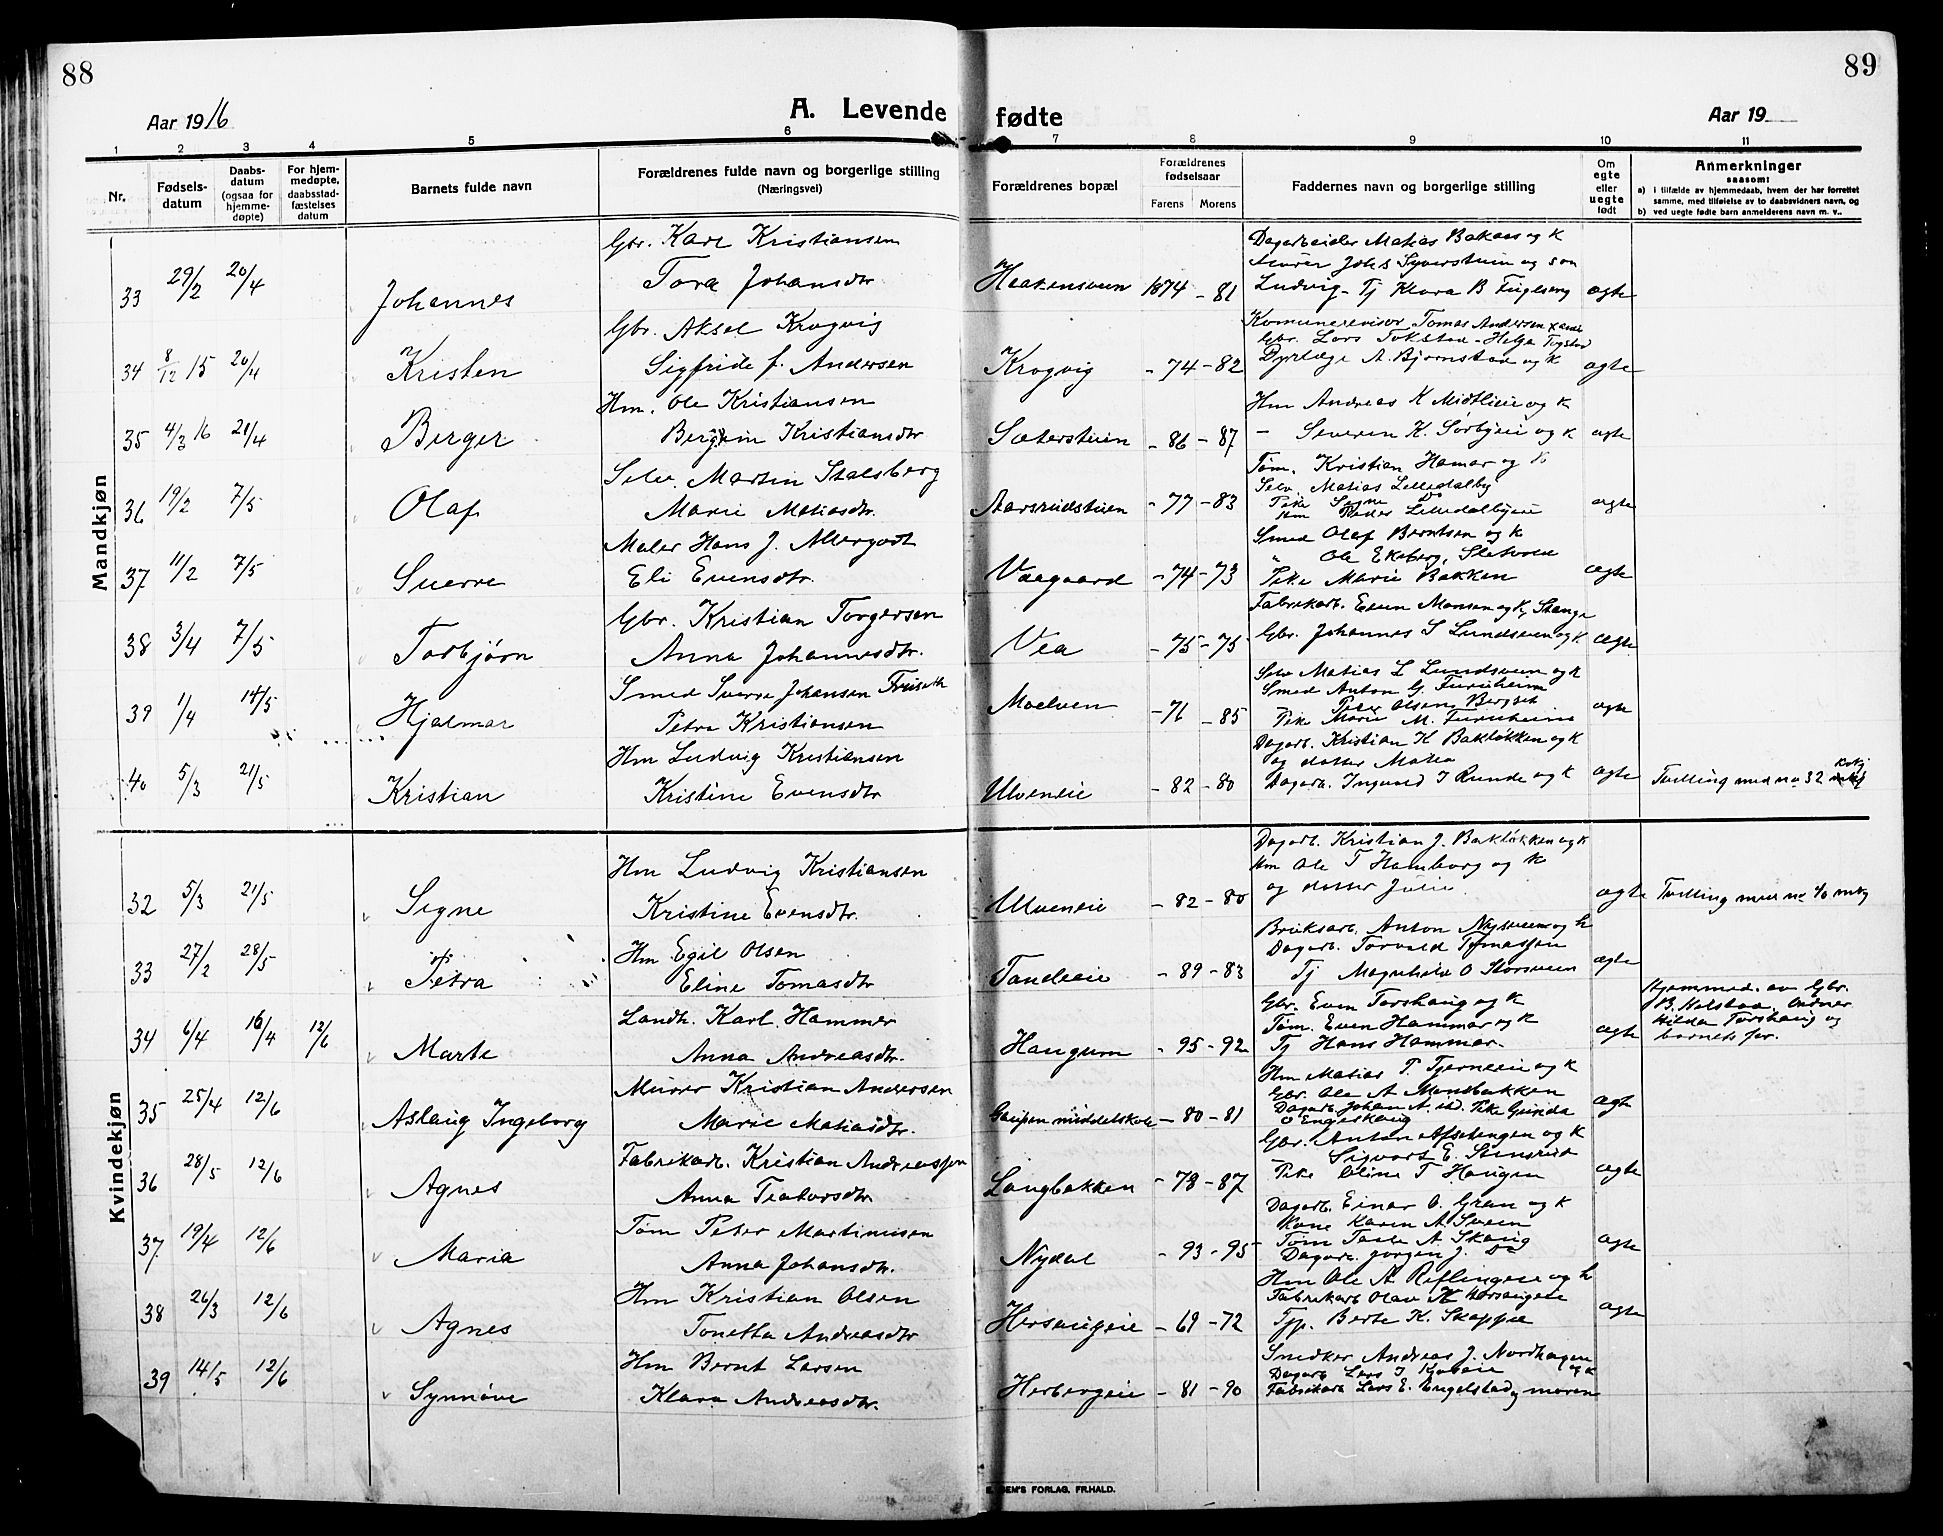 88
89
Aar 1916
A. Levende fødte
Aar 19
1 2 3 4 5 6 7 8 9 10 11
Nr.
Fødselsdatum
Daabsdatum (ogsaa for hjemmedøpte)
For hjemmedøpte, daabsstadfæstelses datum
Barnets fulde navn
Forældrenes fulde navn og borgerlige stilling
(Næringsvei)
Forældrenes bopæl
Forældrenes fødselsaar
Farens Morens
Faddernes navn og borgerlige stilling
Om egte eller uegte født
Anmerkninger
saasom:
a) i tilfælde av hjemmedaab, hvem der har forrettet
samme, med tilføielse av to daabsvidners navn, og
b) ved uegte fødte barn anmelderens navn m. v..
Mandkjøn
Gbr. Karl Kristiansen
33 29/2 20/4 Johannes Tora Johansdtr 1874 - 81 Ludvig - Tj Klara B Fuglseng ægte
Gbr. Aksel Krogvig
34 8/12 15 20/4 Kristen Sigfride f. Andersen Krogvig - 74 - 82 Dyrlæge A. Bjørnstad og k ægte
Komunerevisor Tomas Andersen
Hm. Ole Kristiansen Hm Andreas K Midtlieie og k
35 4/3 16 24/4 Berger Kristiansdtr - 86 - 87 - Severen K. og k ægte
Selv. Martin Stalsberg Tøm. Kristian Hamar og k
36 19/2 7/5 Olaf Marie Matiasdtr. Aarsrudstuen - 77 - 83 Selv. Matias Lilledalby ægte
Maler Hans J. Smed Olaf Berntsen og k
37 11/2 7/5 Sverre Eli Evensdtr. - 74 - 73 Ole Ekeberg, ægte
Pike Marie Bakken
Gbr. Kristian Torgersen Fabrikarb. Even Monsen og k, Stange
38 3/4 7/5 Torbjørn Anna Johannesdtr. Vea - 75 - 75 Gbr. Johannes S Lundsveen og k ægte
Smed Sverre Johansen Selv Matias L Lundsveen og k
39 1/4 14/5 Hjalmar Petra Kristiansen Moelven - 71 - 85 Smed Anton G. Furuheim ægte
Peter Olsen Bergset
Pike Marie M. Furuheim
Hm Ludvig Kristiansen Dagarb. Kristian K Bakløkken og k
og datter Matea
40 5/3 21/5 Kristian Kristine Evensdtr Ulveneie - 82 - 80 Dagarb. Ingvald J Runde og k ægte Tvilling med no 32 kvkj
Kvindekjøn
Dagarb. Kristian J. Bakløkken og k
Hm Ludvig Kristiansen Hm Ole T Hamborg og k
32 5/3 21/5 Signe Kristine Evensdtr. Ulveneie - 82 - 80 og datter Julie ægte Tvilling med no 40 mkj
Hm Egil Olsen Briksarb. Anton og k
Dagarb. Torvald
33 27/2 28/5 Petra Eline Tomasdtr Tandeeie - 89 - 83 Tj Magnhild O Storsveen ægte
Landh. Karl Hammer Gbr. Even Torshaug og k Hjemmed. av Gbr.
Tøm. Even Hammar og k B. Holstad, vidner
34 6/4 16/4 12/6 Marte Anna Andreasdtr. Haugum - 95 - 92 Tj Hans Hammar. ægte Hilda Torshaug og
barnets far.
Murer Kristian Andersen Hm Matias P. Tjerneeie og k
Gbr. Ole A Monsbakken
35 25/4 12/6 Aslaug Ingeborg Marie Matiasdtr. Gaupen middelskole - 80 - 81 Dagarb. Johan A. ibd. Pike Gunda O Engerhaug ægte
Fabrikarb. Kristian Andreassen Gbr. Anton Afsetengen og k
Sigvart E. Stensrud
36 28/5 12/6 Agnes Anna Teatorsdtr Langbakken - 78 - 87 Pike Oline T Haugen ægte
Tøm Peter Martinusen Dagarb. Einar O. Gran og k
Kone Karen A. Sveen
37 19/4 12/6 Maria Anna Johansdtr. Nydal - 93 - 95 Tøm A. Skaug ægte
Dagarb. Jørgen J. Do
Hm Kristian Olsen Hm Ole A Reflingeie og k
Fabrikarb Olav
38 26/3 12/6 Agnes Tonetta Andreasdtr Hersaugeie - 69 - 72 Berte K. ægte
Hm Bernt Larsen Snedker Andreas J. Nordhagen og k
Dagarb Lars J
39 14/5 12/6 Synnøve Klara Andreasdtr. Herbergeie - 81 - 90 Fabrikarb Lars E. Engelstad og moren
FORLAG, FR.HALD.